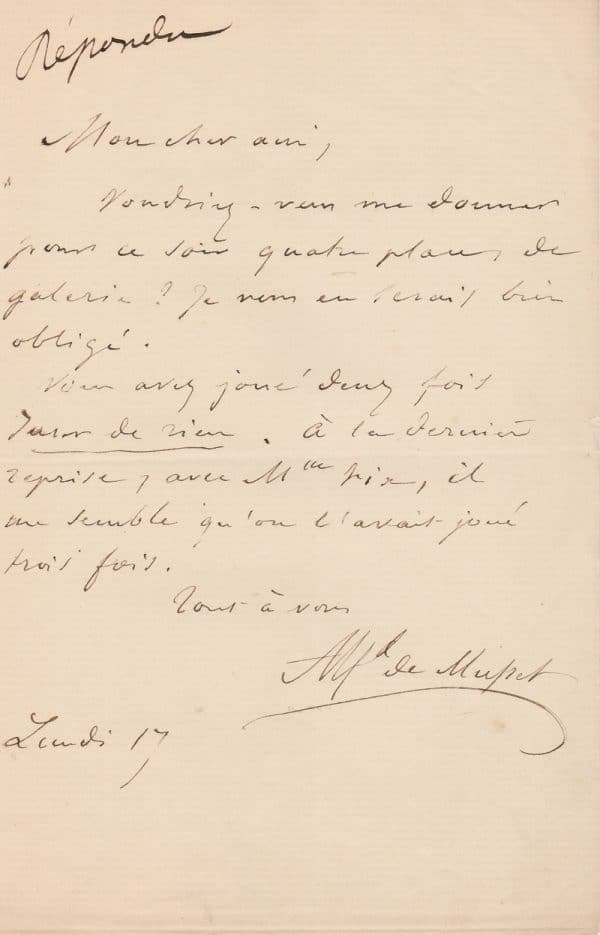 Répondu
Mon cher ami,
Voudriez-vous me donner
pour ce soir quatre places de
galerie ? Je vous en serais bien
obligé.
Vous avez joué deux fois
Jurer de rien. À la dernière
reprise, avec Mme Fix, il
me semble qu'on l'avait joué
trois fois.
Tout à vous
Alfd de Musset
Lundi 17